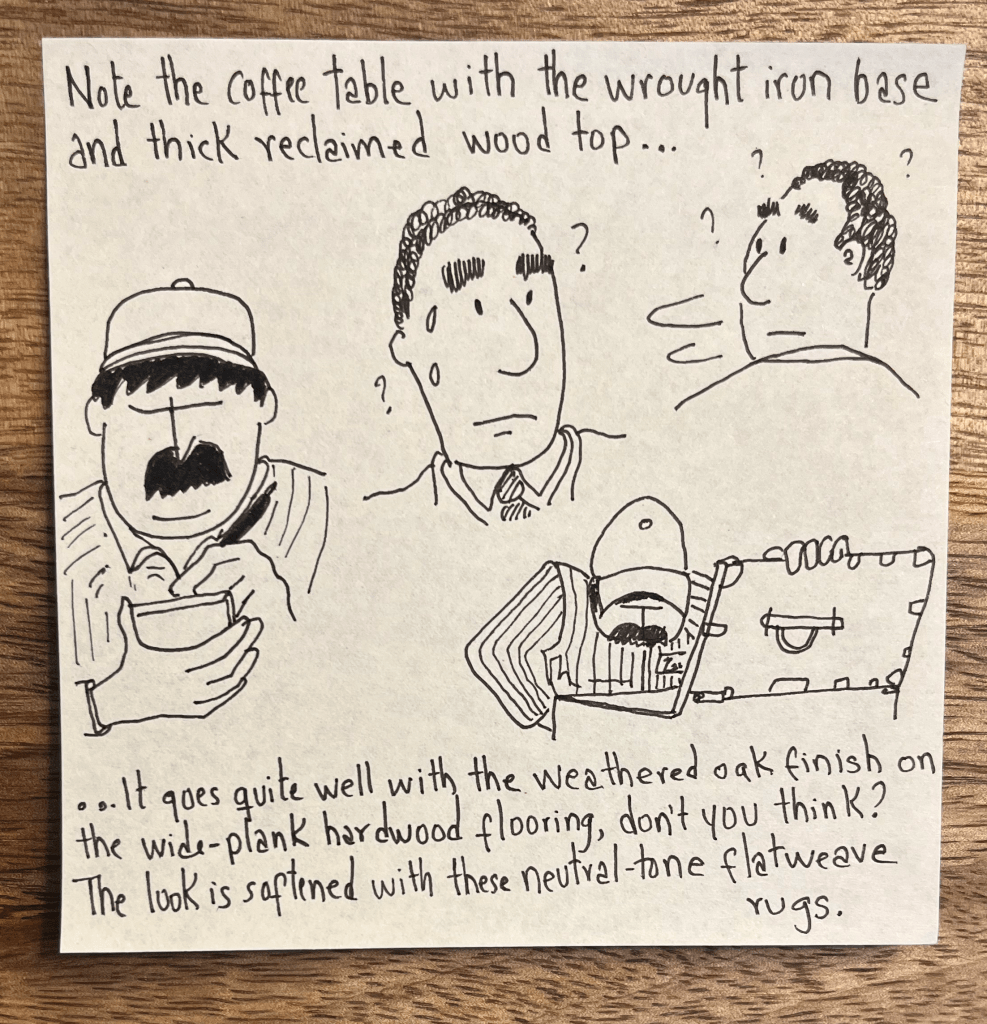 Note the coffee table with the wrought iron base
and thick reclaimed wood top...
? ? ? ? ?
...It goes quite well with the weathered oak finish on
the wide-plank hardwood flooring, don't you think?
The look is softened with these neutral-tone flatweave
rugs.